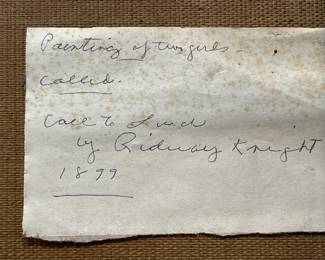 Painting of two girls -
called -
Call to Lunch
by Ridway Knight
1899